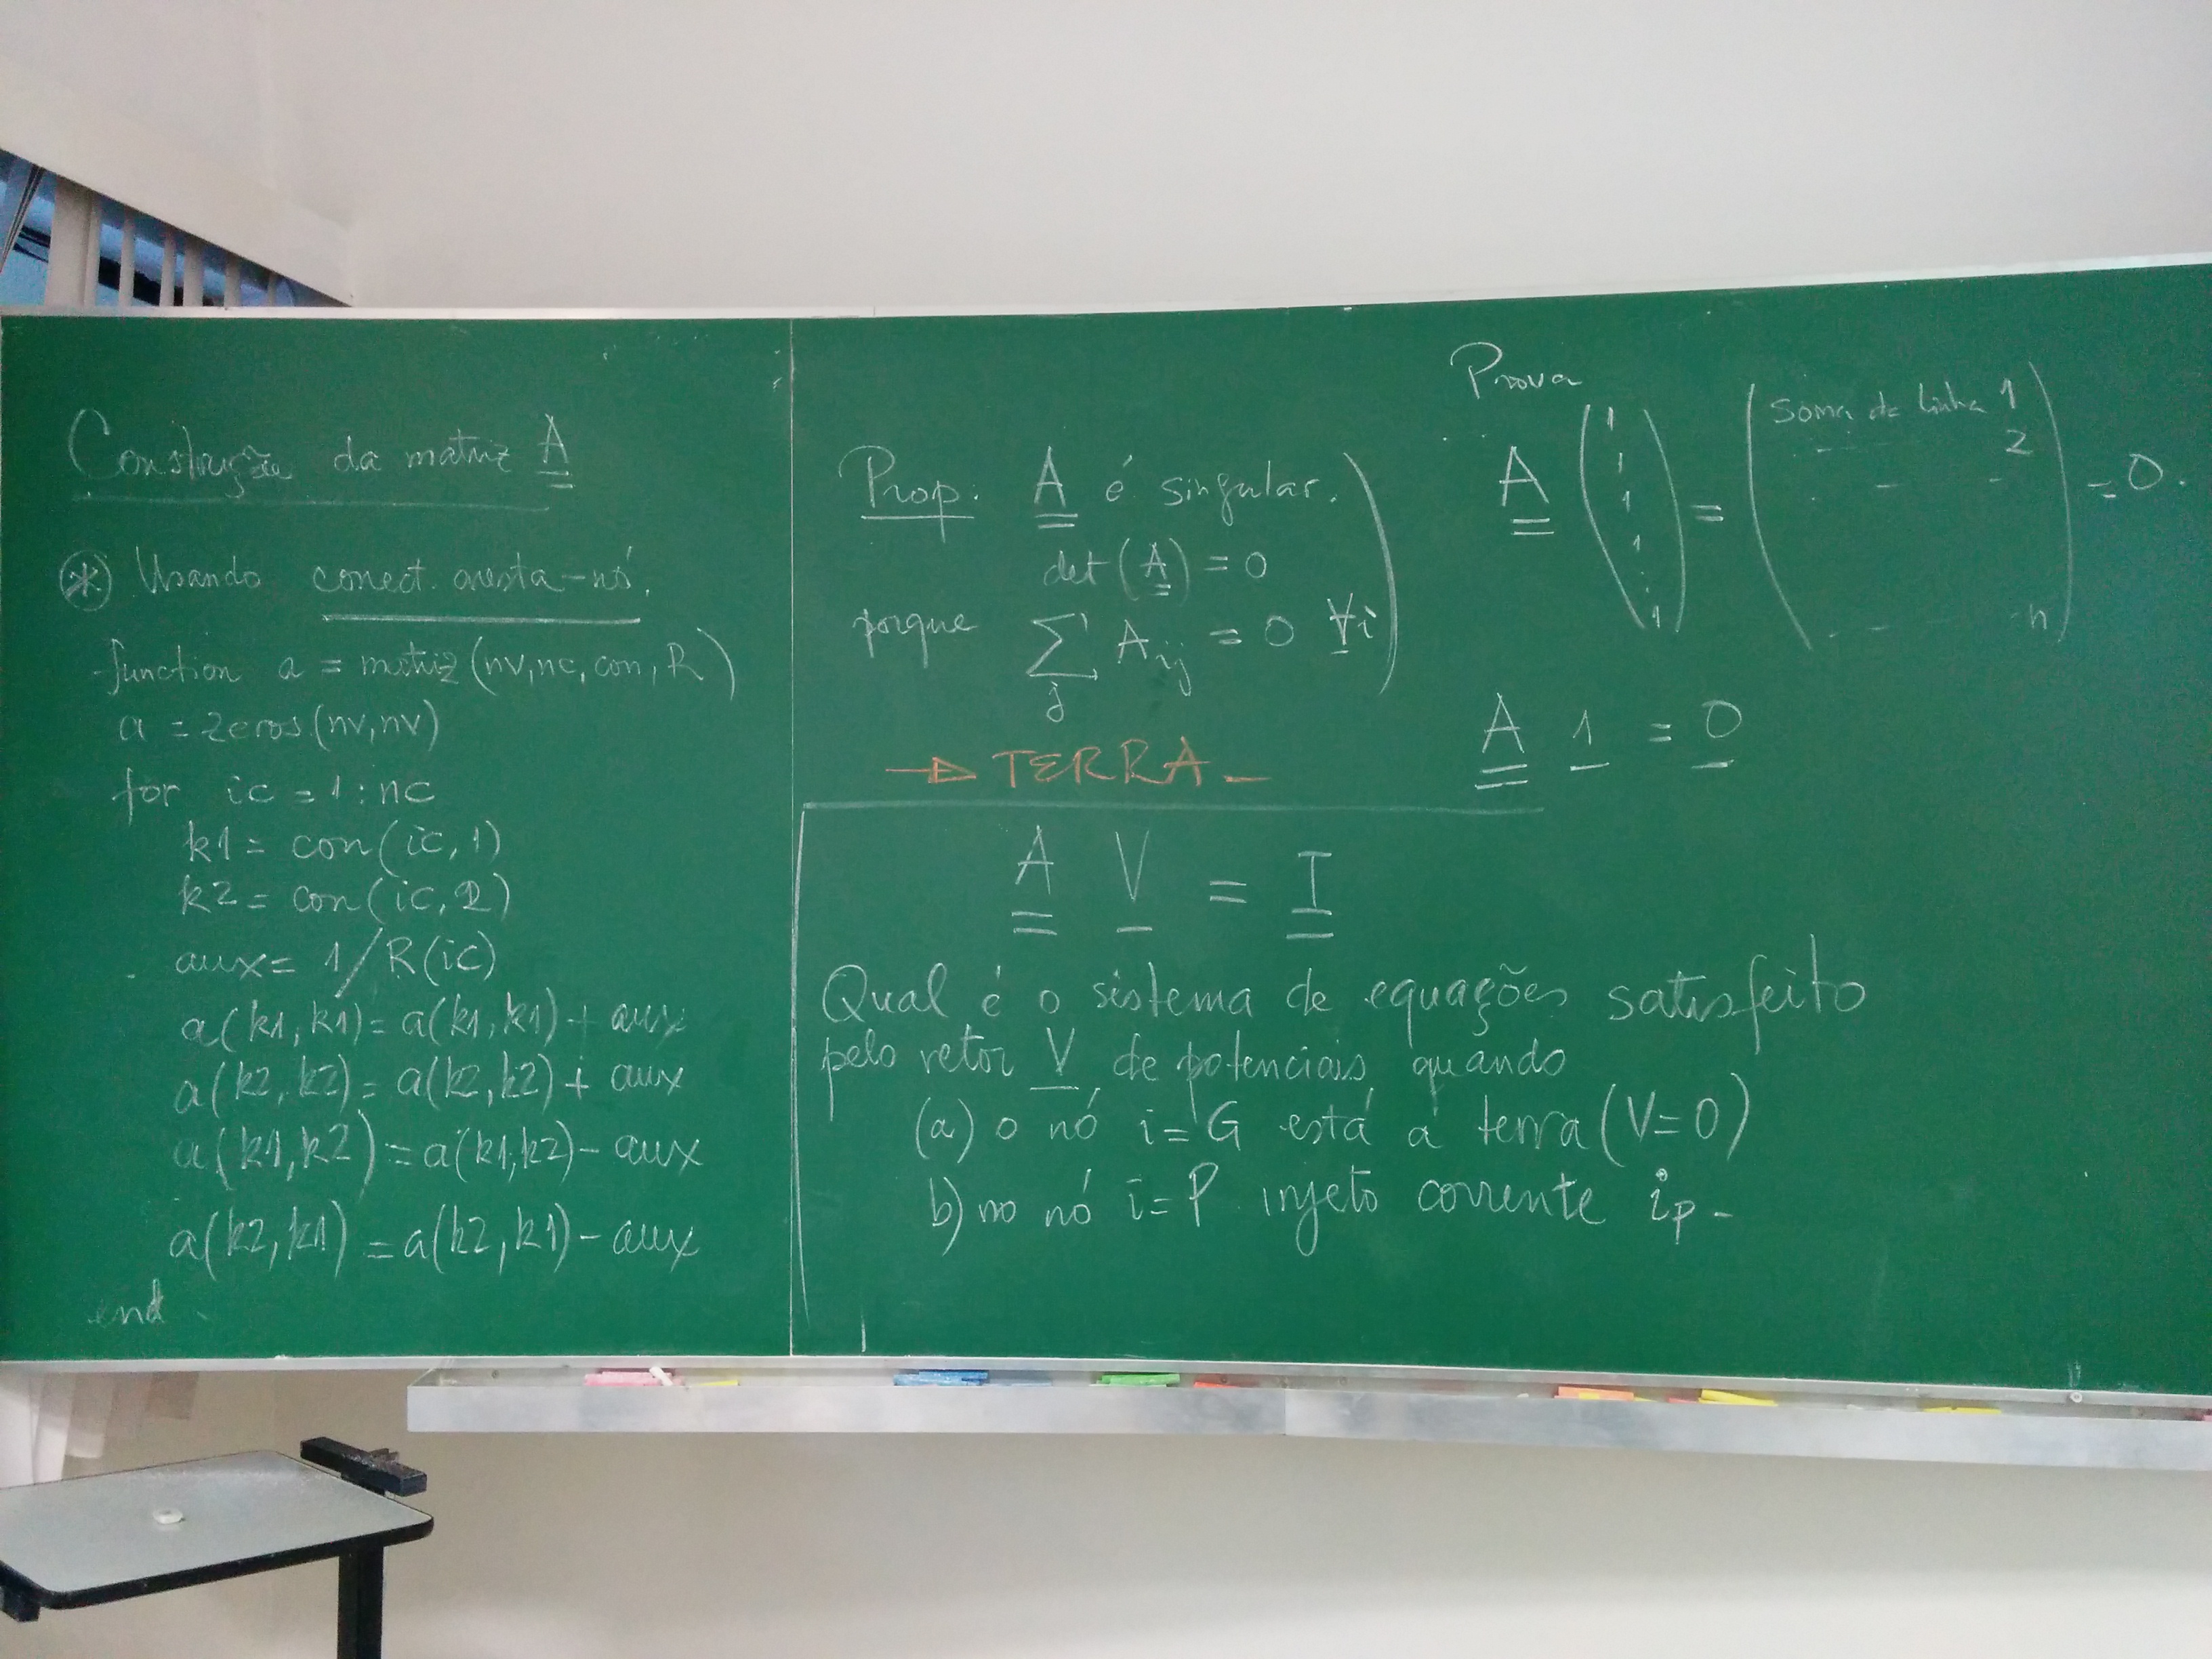 Construção da matriz A
(*) Usando conect. aresta-nó.
function a = matriz(nv,nc,con,R)
a = zeros(nv,nv)
for ic = 1:nc
k1 = con(ic,1)
k2 = con(ic,2)
aux = 1/R(ic)
a(k1,k1) = a(k1,k1) + aux
a(k2,k2) = a(k2,k2) + aux
a(k1,k2) = a(k1,k2) - aux
a(k2,k1) = a(k2,k1) - aux
end
Prop: A é singular.
det(A) = 0
porque ∑ A_ij = 0 ∀i
j
→ TERRA
Prova
A (1 1 1 1 ⋮ 1) = (soma da linha 1
2
n) = 0.
A 1 = 0
A V = I
Qual é o sistema de equações satisfeito
pelo vetor V de potenciais quando
(a) o nó i=G está a terra (V=0)
b) no nó i=P injeto corrente i_P -